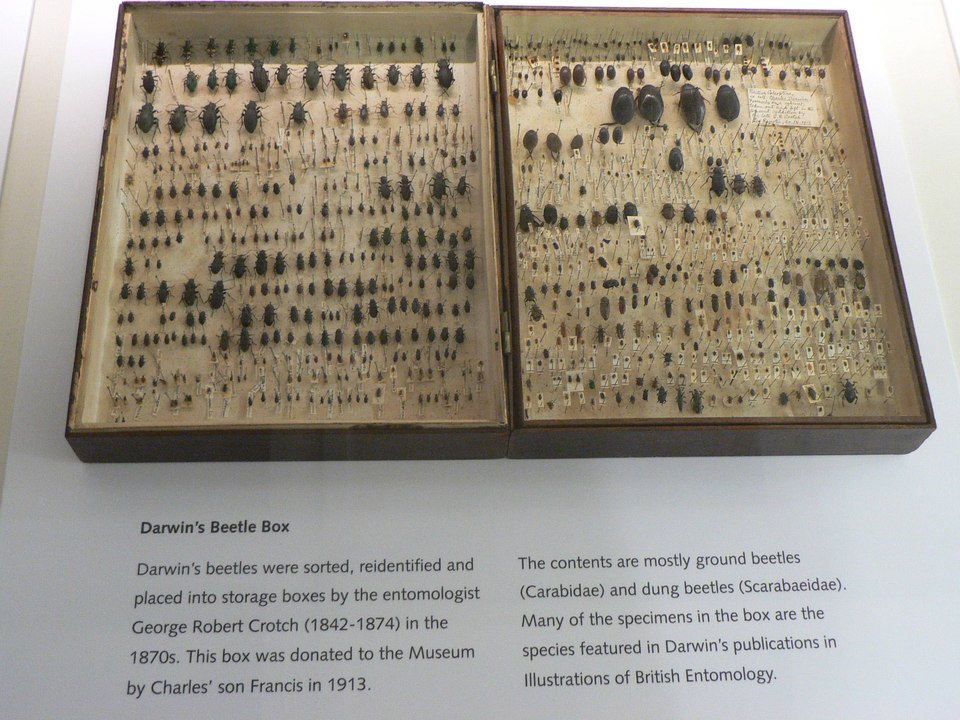 Darwin's Beetle Box
Darwin's beetles were sorted, reidentified and
placed into storage boxes by the entomologist
George Robert Crotch (1842-1874) in the
1870s. This box was donated to the Museum
by Charles' son Francis in 1913.
The contents are mostly ground beetles
(Carabidae) and dung beetles (Scarabaeidae).
Many of the specimens in the box are the
species featured in Darwin's publications in
Illustrations of British Entomology.